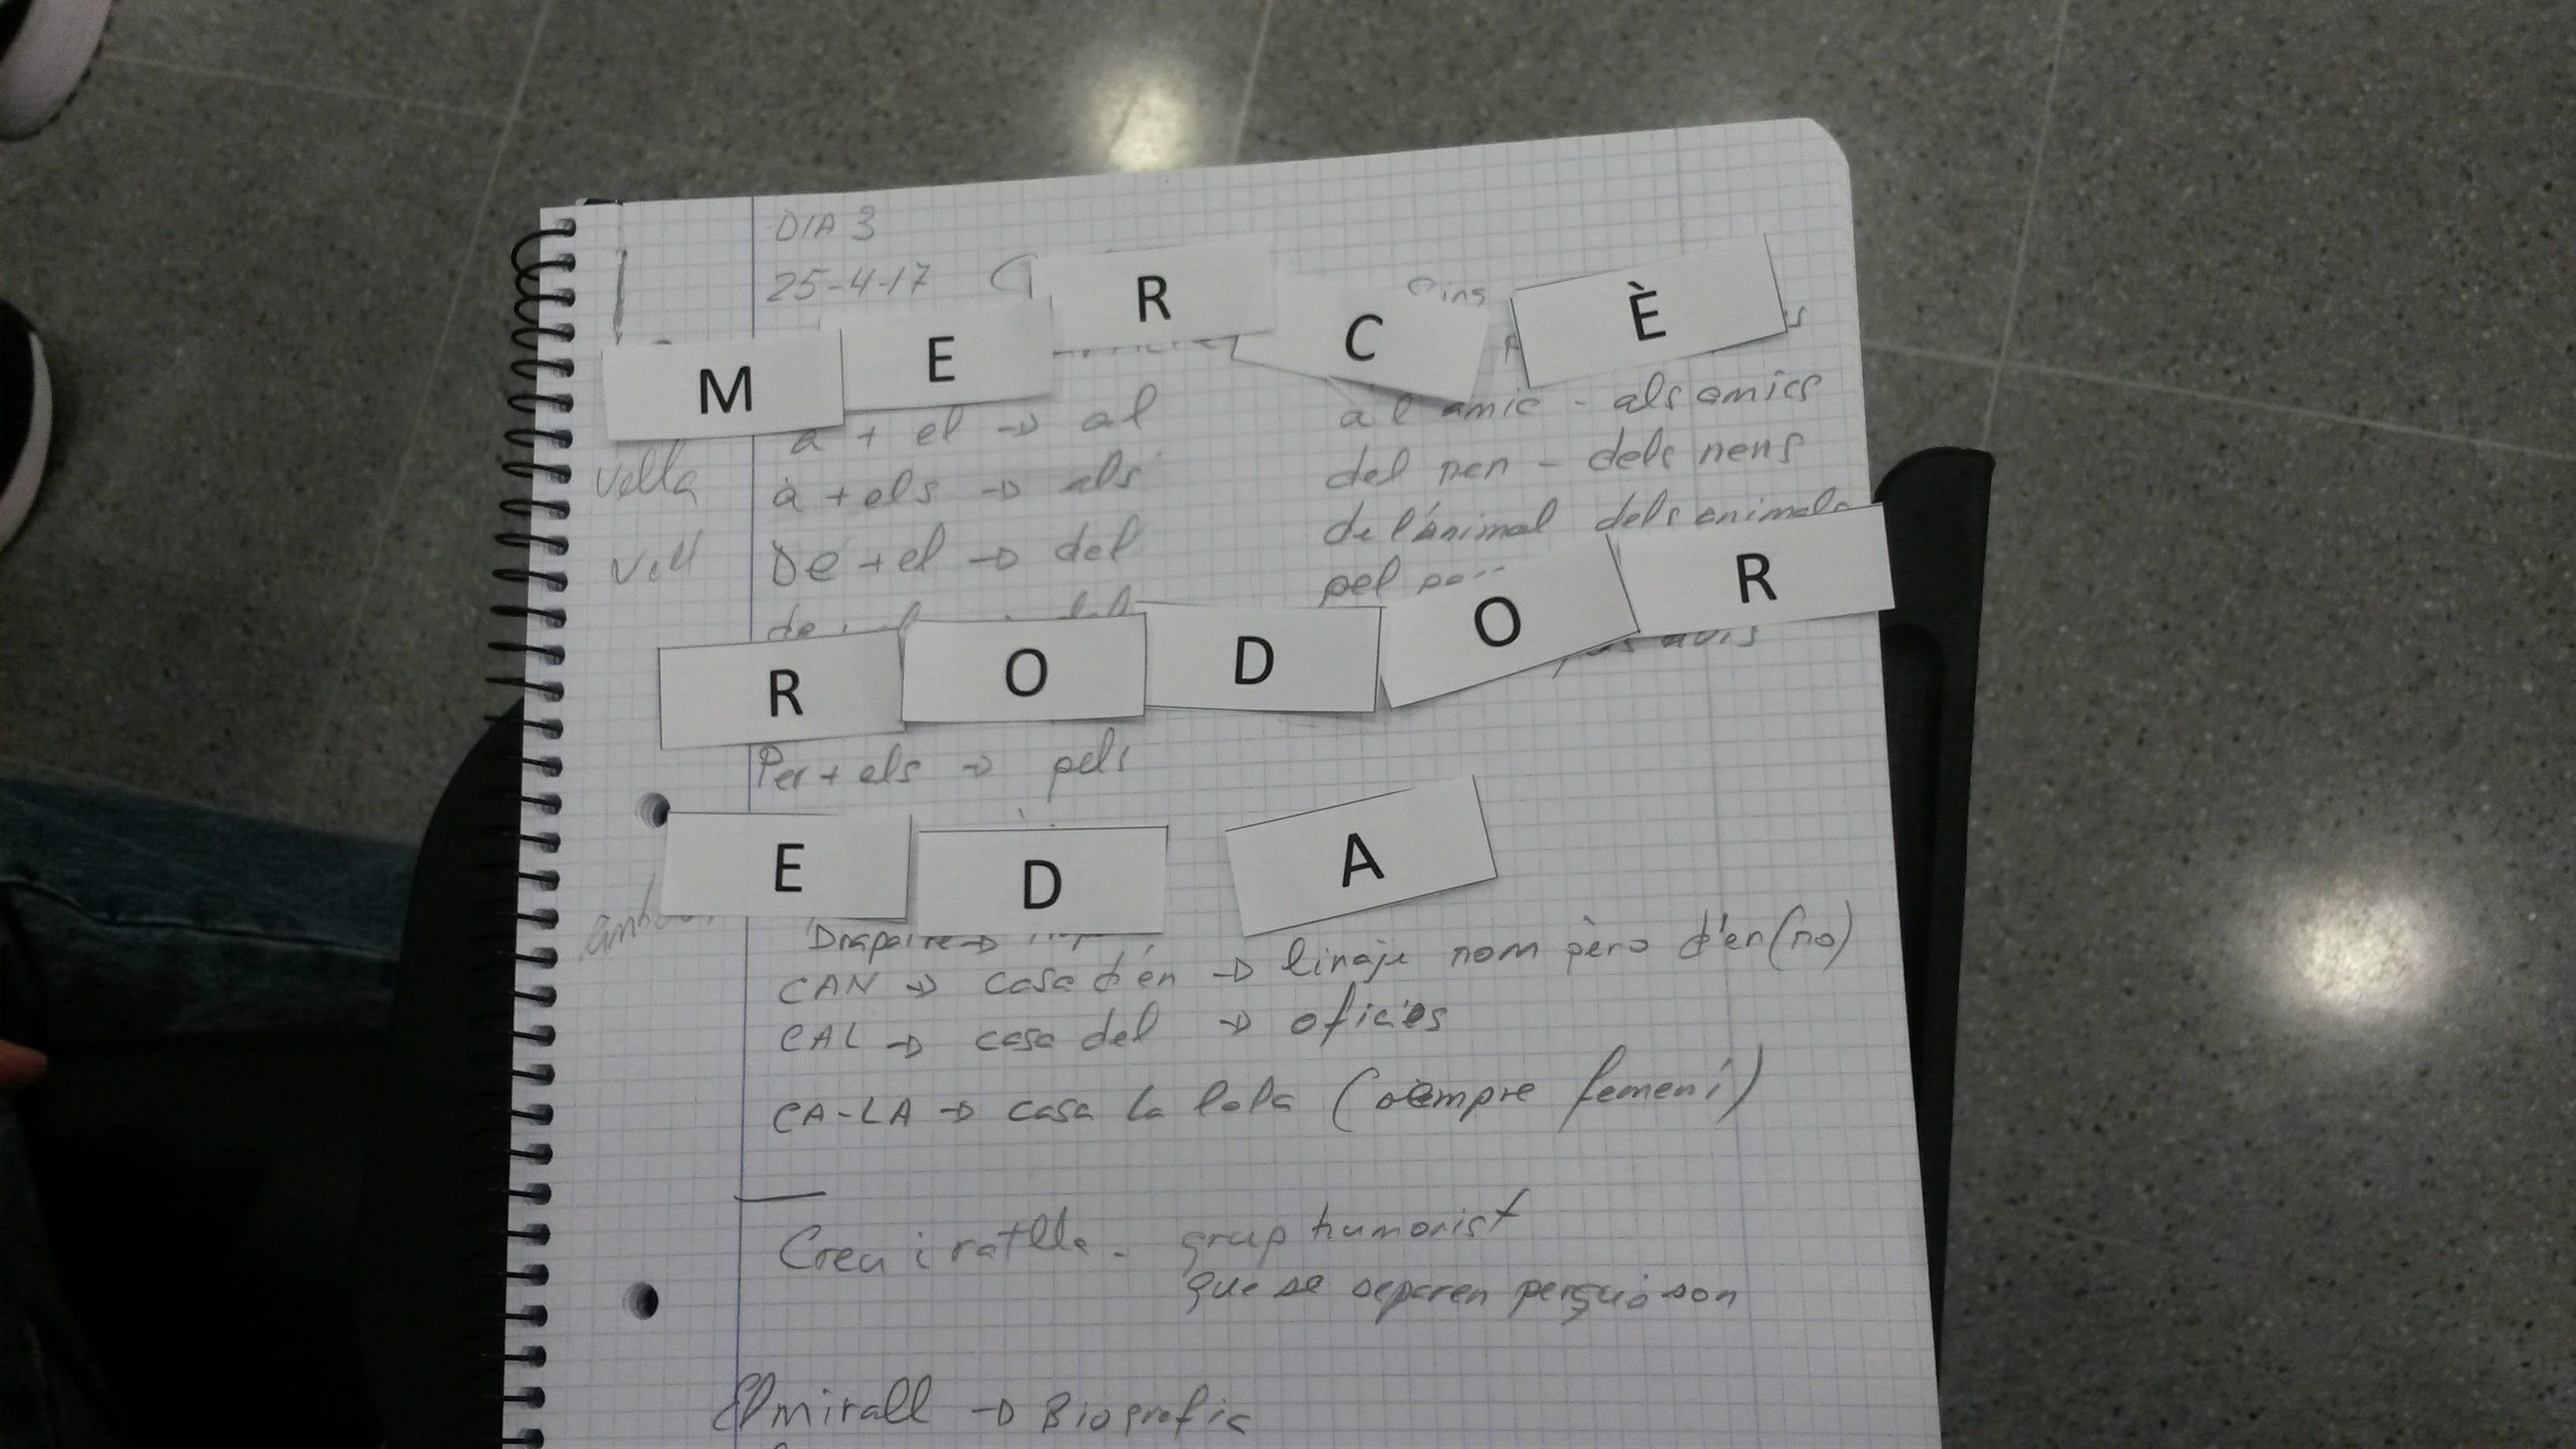 DIA 3
25-4-17
M E R C È
a + el → al
al amic - als amics
Vella
a + els → als
del nen - dels nens
Vell
De + el → del
de l'animal dels animals
pel
R O D O R
Per + els → pels
E D A
Drapaire →
CAN → casa d'en → linaje nom però d'en (no)
CAL → casa del → oficios
CA-LA → casa la lola (siempre femení)
Creu i ratlla - grup humorist
que se separen perquè son
El mirall → Biografia